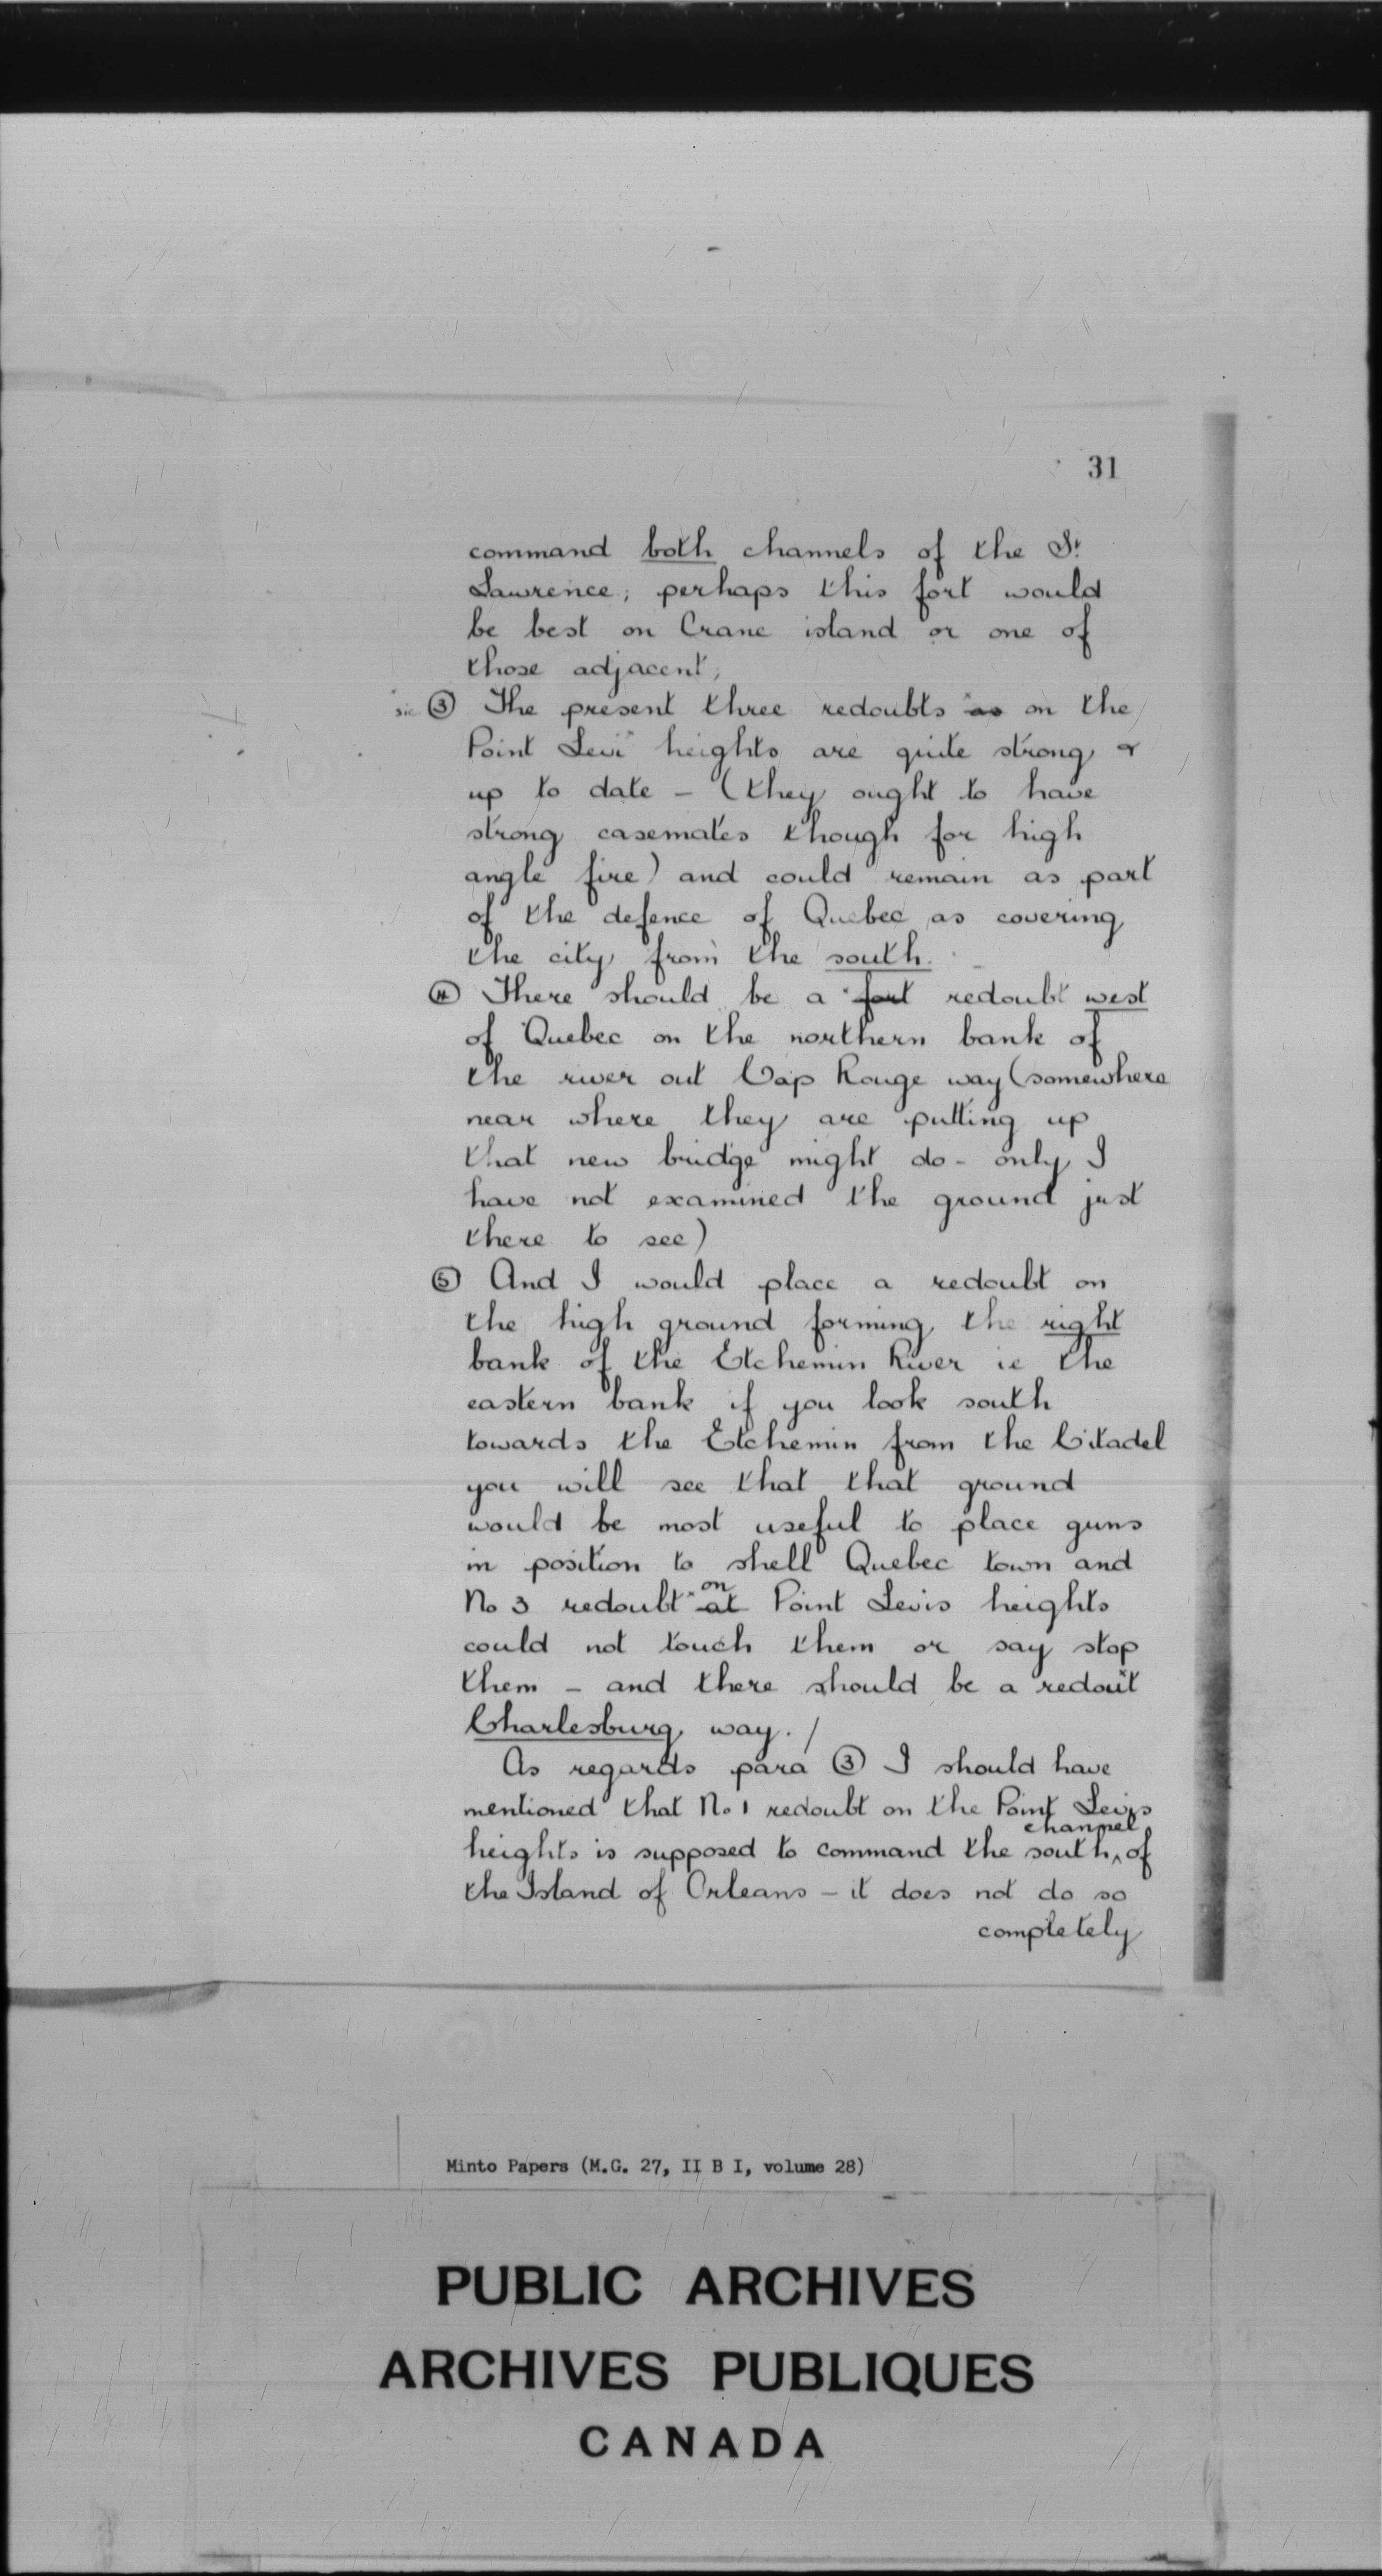 31
command both channels of the St
Lawrence; perhaps this fort would
be best on Crane island or one of
those adjacent;
sic ③ The present three redoubts as on the
Point Levi heights are quite strong &
up to date - (they ought to have
strong casemates though for high
angle fire) and could remain as part
of the defence of Quebec as covering
the city from the south.
④ There should be a fort redoubt west
of Quebec on the northern bank of
the river out Cap Rouge way (somewhere
near where they are putting up
that new bridge might do - only I
have not examined the ground just
there to see)
⑤ And I would place a redoubt on
the high ground forming the right
bank of the Etchemin River ie the
eastern bank if you look south
towards the Etchemin from the Citadel
you will see that that ground
would be most useful to place guns
in position to shell Quebec town and
on
No 3 redoubt at Point Levis heights
could not touch them or say stop
them - and there should be a redout
Charlesburg way. /
As regards para ③ I should have
mentioned that No 1 redoubt on the Point Levis
channel
heights is supposed to command the south ‸ of
the Island of Orleans - it does not do so
completely
Minto Papers (M.G. 27, II B I, volume 28)
PUBLIC ARCHIVES
ARCHIVES PUBLIQUES
CANADA